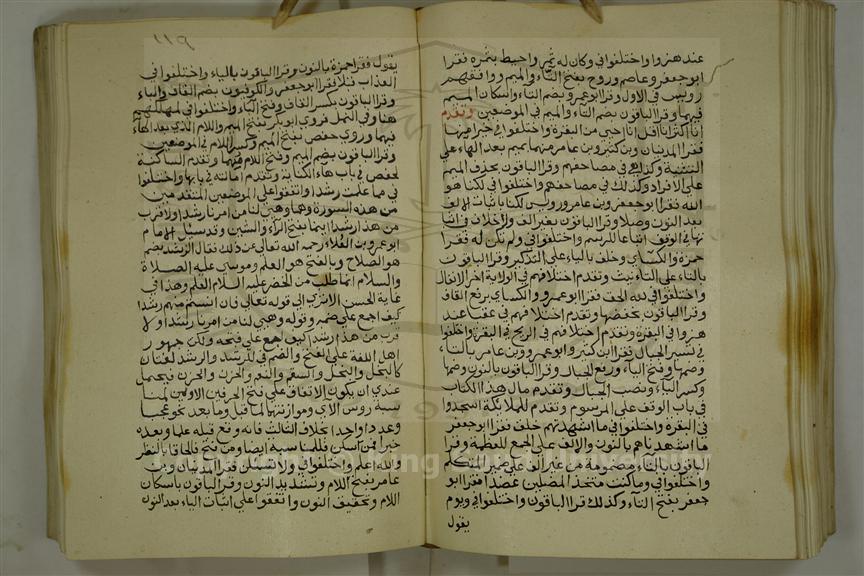 عند هزوا واختلفوا في وكان له ثمر واحيط بثمره فقرا
ابو جعفر وعاصم وروح بفتح الثاء والميم ووافقهم
رويس في الاول وقرا ابو عمرو بضم الثاء واسكان الميم
فيهما وقرا الباقون بضم الثاء والميم في الموضعين وتقدم
انا اكثر انا اقل انا احيي من البقرة واختلفوا في خيرا منها
فقرا المدنيان وبن كثير وبن عامر منهما بميم بعد الهاء على
التثنية وكذلك في مصاحفهم وقرا الباقون بحذف الميم
على الافراد وكذلك في مصاحفهم واختلفوا في لكنا هو
الله فقرا ابو جعفر وبن عامر ورويس لكنا باثبات الالف
بعد النون وصلا وقرا الباقون بغير الف ولا خلاف في اثبا
تها في الوقف اتباعا للرسم واختلفوا في ولم تكن له فقرا
حمزة والكسائي وخلف بالياء على التذكير وقرا الباقون
بالتاء على التانيث وتقدم اختلافهم في الولاية اخر الانفال
واختلفوا في لله الحق فقرا ابو عمرو والكسائي برفع القاف
وقرا الباقون بخفضها وتقدم اختلافهم في عقبا عند
هزوا في البقرة وتقدم اختلافهم في الريح في البقرة واختلفوا
في نسير الجبال فقرا ابن كثير وابو عمرو وبن عامر بالتاء
وضمها وفتح الياء ورفع الجبال وقرا الباقون بالنون وضمها
وكسر الياء ونصب الجبال وتقدم مال هذا الكتاب
في باب الوقف على المرسوم وتقدم للملائكة اسجدوا
في البقرة واختلفوا في ما اشهدتهم خلق فقرا ابو جعفر
ما اشهدناهم بالنون والالف على الجمع للعظمة وقرا
الباقون بالتاء مضمومة من غير الف على ضمير المتكلم
واختلفوا في وما كنت متخذ المضلين عضدا فقرا ابو
جعفر بفتح التاء وكذلك قرا الباقون واختلفوا في ويوم
يقول
١١٩
يقول فقرا حمزة بالنون وقرا الباقون بالياء واختلفوا في
العذاب قبلا فقرا ابو جعفر والكوفيون بضم القاف والباء
وقرا الباقون بكسر القاف وفتح الباء واختلفوا في لمهلكهم
هنا وفي النمل فروى ابو بكر بفتح الميم واللام الذي بعد الهاء
فيهما وروى حفص بفتح الميم وكسر اللام في الموضعين
وقرا الباقون بضم الميم وفتح اللام فيهما وتقدم انسانيه
لحفص في باب هاء الكناية وتقدم امالته في بابها واختلفوا
في مما علمت رشدا واتفقوا على الموضعين المتقدمين
من هذه السورة وهما وهيئ لنا من امرنا رشدا ولاقرب
من هذا رشدا انهما بفتح الراء والشين وقد سئل الامام
ابو عمرو بن العلاء رحمه الله تعالى عن ذلك فقال الرشد بضم
هو الصلاح وبالفتح هو العلم وموسى عليه الصلاة
والسلام انما طلب من الخضر عليه السلام العلم وهذا في
غاية الحسن الا ترى الى قوله تعالى فان انستم منهم رشدا
كيف اجمع على ضمه وقوله وهيئ لنا من امرنا رشدا ولا
قرب من هذا رشدا كيف اجمع على فتحه ولكن جمهور
اهل اللغة على الفتح والضم في الرشد والرشد لغتان
كالبخل والبخل والسقم والسقم والحزن والحزن فيحتمل
عندي ان يكون الاتفاق على فتح الحرفين الاولين لمنا
سبة روس الاي وموازنتها لما قبل وما بعد نحو عجبا
وعددا واحدا بخلاف الثالث فانه وقع قبله علما وبعده
خبرا فمن اسكن فللمناسبة ايضا ومن فتح فالحاقا بالنظر
والله اعلم واختلفوا في ولا تسئلن فقرا المدنيان وبن
عامر بفتح اللام وتشديد النون وقرا الباقون باسكان
اللام وتخفيف النون واتفقوا على اثبات الياء بعد النون